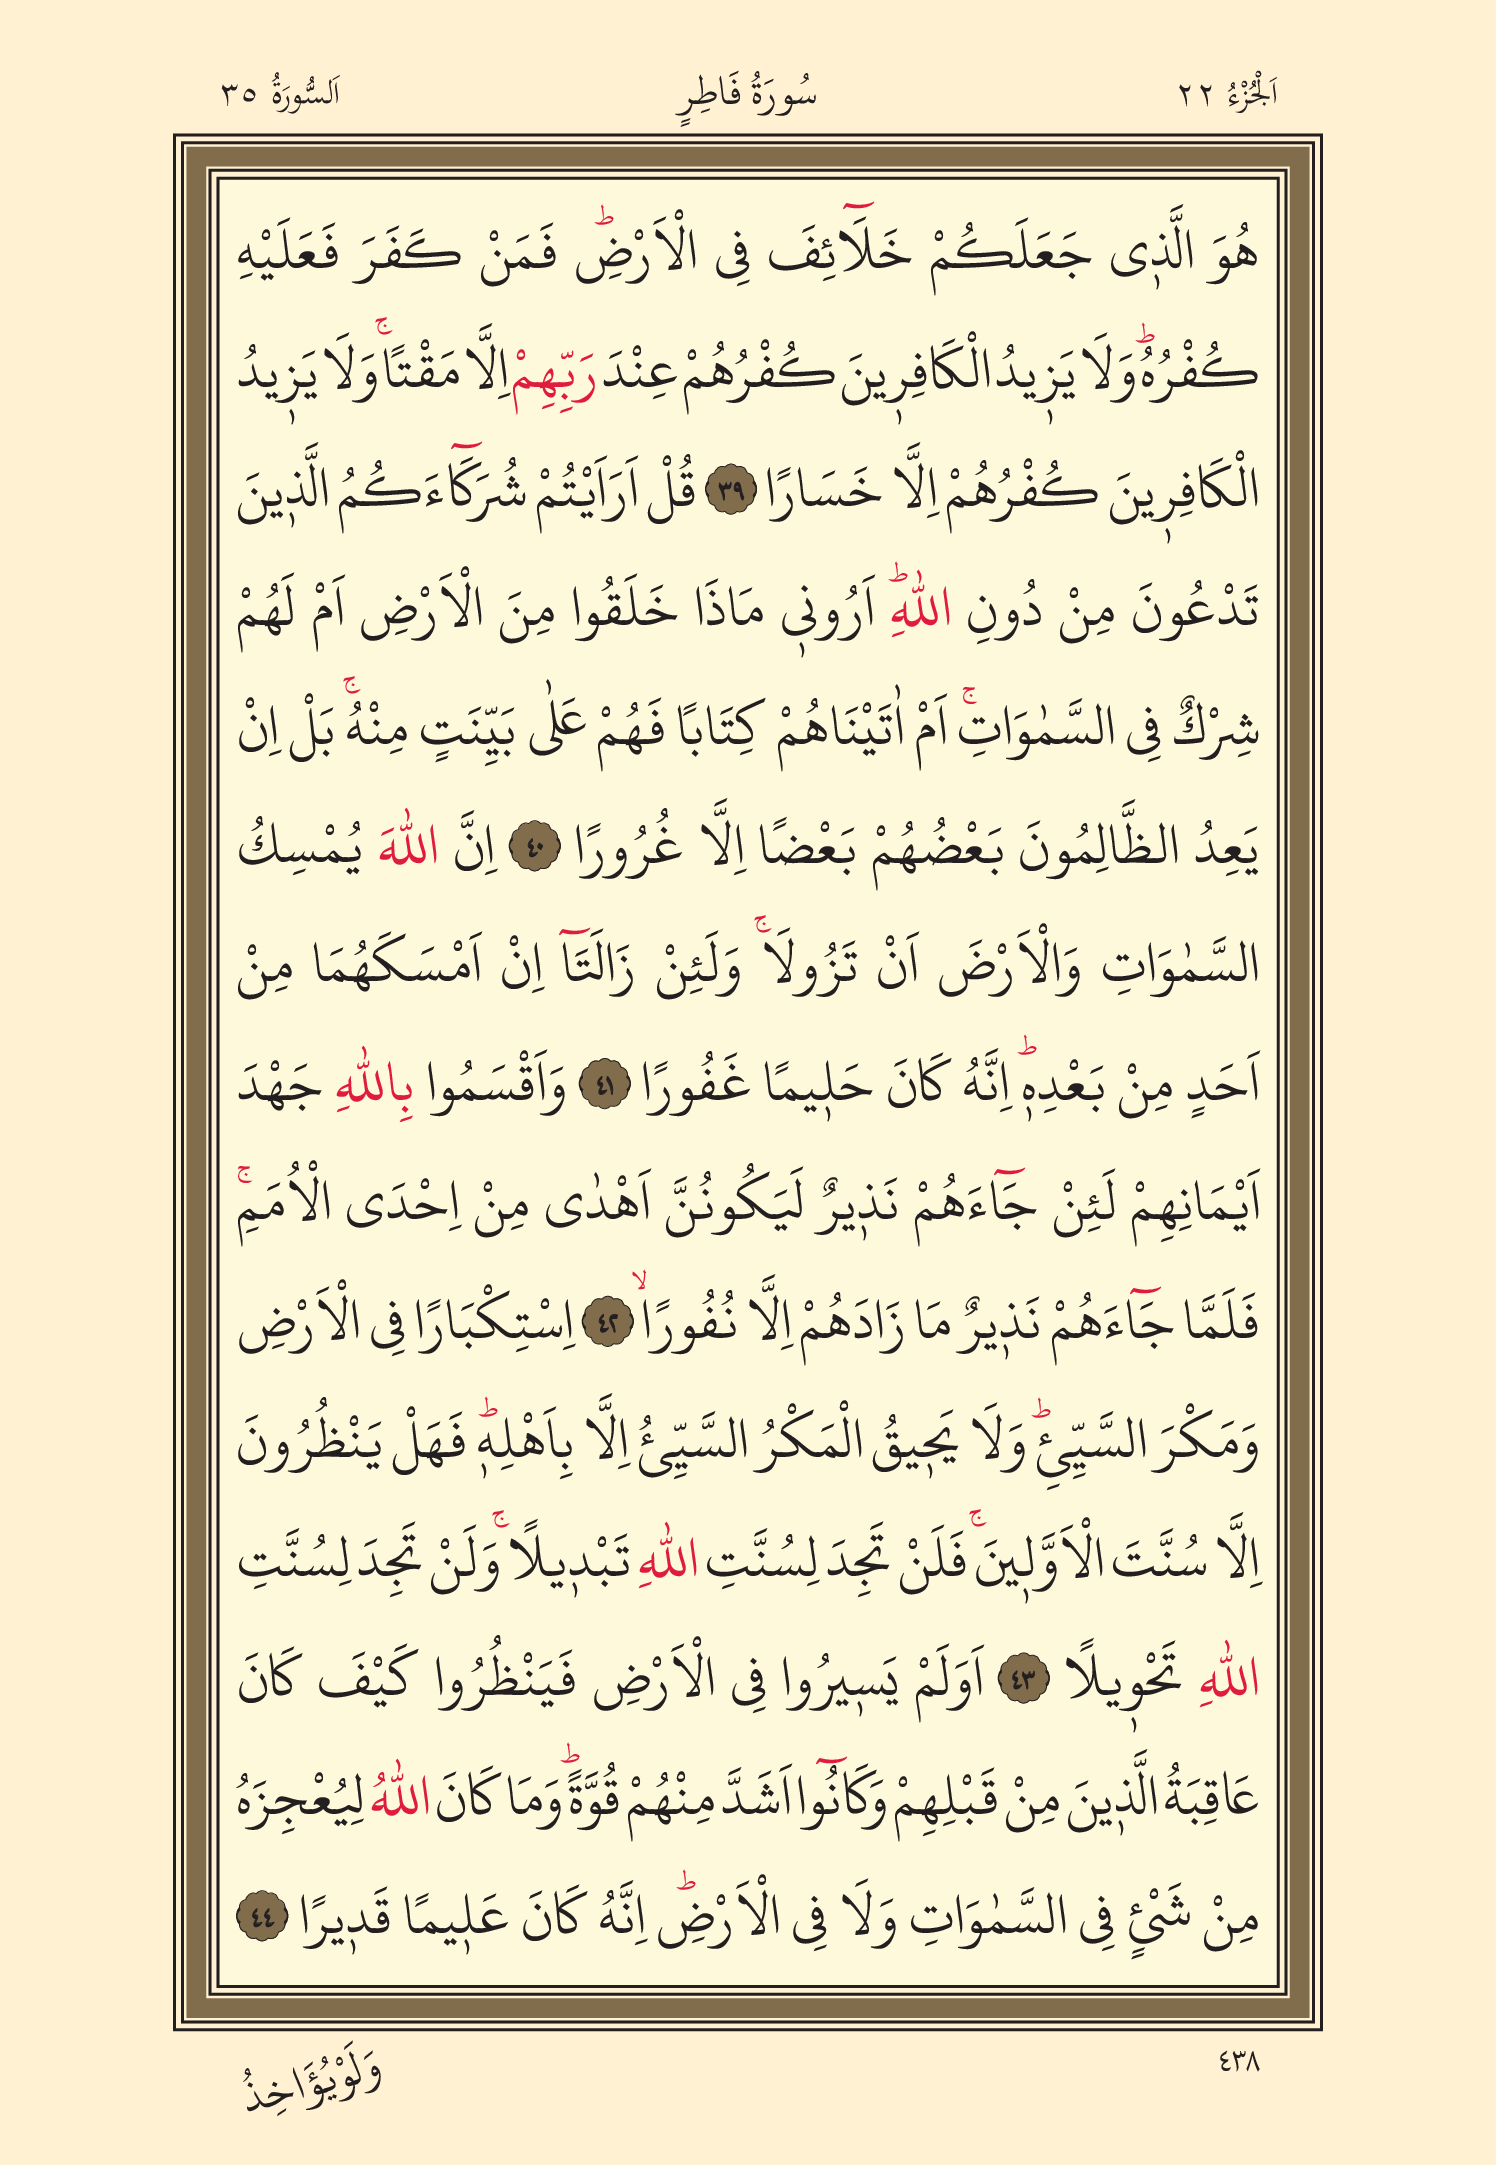 اَلْجُزْءُ ٢٢ سُورَةُ فَاطِرٍ اَلسُّورَةُ ٣٥
هُوَ الَّذٖى جَعَلَكُمْ خَلَٓائِفَ فِى الْاَرْضِؕ فَمَنْ كَفَرَ فَعَلَيْهِ
كُفْرُهُؕ وَلَا يَزٖيدُ الْكَافِرٖينَ كُفْرُهُمْ عِنْدَ رَبِّهِمْ اِلَّا مَقْتًاۚ وَلَا يَزٖيدُ
الْكَافِرٖينَ كُفْرُهُمْ اِلَّا خَسَارًا ٣٩ قُلْ اَرَاَيْتُمْ شُرَكَٓاءَكُمُ الَّذٖينَ
تَدْعُونَ مِنْ دُونِ اللّٰهِؕ اَرُونٖى مَاذَا خَلَقُوا مِنَ الْاَرْضِ اَمْ لَهُمْ
شِرْكٌ فِى السَّمٰوَاتِۚ اَمْ اٰتَيْنَاهُمْ كِتَابًا فَهُمْ عَلٰى بَيِّنَتٍ مِنْهُۚ بَلْ اِنْ
يَعِدُ الظَّالِمُونَ بَعْضُهُمْ بَعْضًا اِلَّا غُرُورًا ٤٠ اِنَّ اللّٰهَ يُمْسِكُ
السَّمٰوَاتِ وَالْاَرْضَ اَنْ تَزُولَاۚ وَلَئِنْ زَالَتَٓا اِنْ اَمْسَكَهُمَا مِنْ
اَحَدٍ مِنْ بَعْدِهٖؕ اِنَّهُ كَانَ حَلٖيمًا غَفُورًا ٤١ وَاَقْسَمُوا بِاللّٰهِ جَهْدَ
اَيْمَانِهِمْ لَئِنْ جَٓاءَهُمْ نَذٖيرٌ لَيَكُونُنَّ اَهْدٰى مِنْ اِحْدَى الْاُمَمِۚ
فَلَمَّا جَٓاءَهُمْ نَذٖيرٌ مَا زَادَهُمْ اِلَّا نُفُورًاۙ ٤٢ اِسْتِكْبَارًا فِى الْاَرْضِ
وَمَكْرَ السَّيِّئِؕ وَلَا يَحٖيقُ الْمَكْرُ السَّيِّئُ اِلَّا بِاَهْلِهٖؕ فَهَلْ يَنْظُرُونَ
اِلَّا سُنَّتَ الْاَوَّلٖينَۚ فَلَنْ تَجِدَ لِسُنَّتِ اللّٰهِ تَبْدٖيلًاۚ وَلَنْ تَجِدَ لِسُنَّتِ
اللّٰهِ تَحْوٖيلًا ٤٣ اَوَلَمْ يَسٖيرُوا فِى الْاَرْضِ فَيَنْظُرُوا كَيْفَ كَانَ
عَاقِبَةُ الَّذٖينَ مِنْ قَبْلِهِمْ وَكَانُٓوا اَشَدَّ مِنْهُمْ قُوَّةًؕ وَمَا كَانَ اللّٰهُ لِيُعْجِزَهُ
مِنْ شَىْئٍ فِى السَّمٰوَاتِ وَلَا فِى الْاَرْضِؕ اِنَّهُ كَانَ عَلٖيمًا قَدٖيرًا ٤٤
٤٣٨ وَلَوْيُؤَاخِذُ